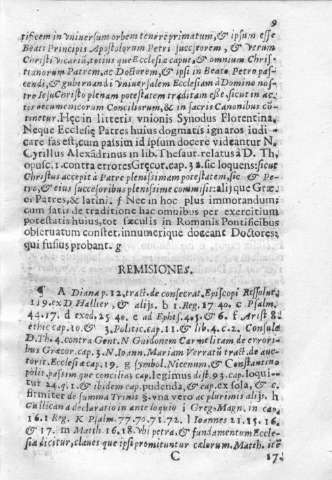 9
tificem in vniuersum orbem tenere primatum, & ipsum esse
Beati Principis Apostolorum Petri successorem, & verum
Christi vicariũ, totius que Ecclesiæ caput, & omnium Chris-
tianorum Patrem, ac Doctorem, & ipsi in Beato Petro pas-
cendi, & gubernandi vniuersalem Ecclesiam à Domino nos-
tro Iesu Christo plenam potestatem traditam esse, sicut in ac-
tis œcumenicorum Conciliorum, & in sacris Canonibus cõ-
tinetur. Hęc in litteris vnionis Synodus Florentina.
Neque Ecclesię Patres huius dogmatis ignaros iudi-
care fas est, cum passim id ipsum docere videantur N.
Cyrillus Alexãdrinus in lib. Thesaur. relatus à D. Th.
opusc. 1. contra errores Gręcor. cap. 32. sic loquens: sicut
Christus accepit à Patre plenissimam potestatem, sic & Pe-
tro, & eius succesoribus plenissime commisit: alij que Græ
ci Patres, & latini. f Nec in hoc plus immorandum:
cum satis de traditione hac omnibus per exercitium
potestatis huius, tot sæculis in Romanis Pontificibus
obseruatum constet, innumerique doceant Doctores,
qui fusius probant. g
REMISIONES.
¶ A Diana p. 12. tract. de consecrat. Episcopi Resolut.
119. ex D. Hallier, & alijs. b 1. Reg. 17 40. c Psalm.
44. 17. d exod. 25 40. e ad Ephes. 4. 5. & 6. f Arist 8.
ethic cap. 10. & 3. Politic. cap. 11. & lib. 4. c. 2. Consule
D. Th. 4. contra Gent. N Guidonem Carmelitam de errori-
bus Græcor. cap. 3. N. Ioann. Mariam Verratũ tract. de auc-
torit. Ecclesiæ cap. 19. g symbol. Nicenum, & Constantino
polit. passim que concilia cap. legimus dist. 93. cap. loqui-
tur 24. q. 1. & ibidem cap. pudenda, & cap. ex sola, & c.
firmiter de summa Trinit §. vna vero ac plurimis alijs. h
Gullican a declaratio in ante loquio i Greg. Magn. in cap.
16. 1. Reg. K Psalm. 77. 70. 71. 72. l Ioannes 21. 15. 16.
& 17. m Matth 16. 18. Vbi petra, & fundamentum Eccle-
sia dicitur, claues que ipsi promituntur cælorum. Matth.
C 17.